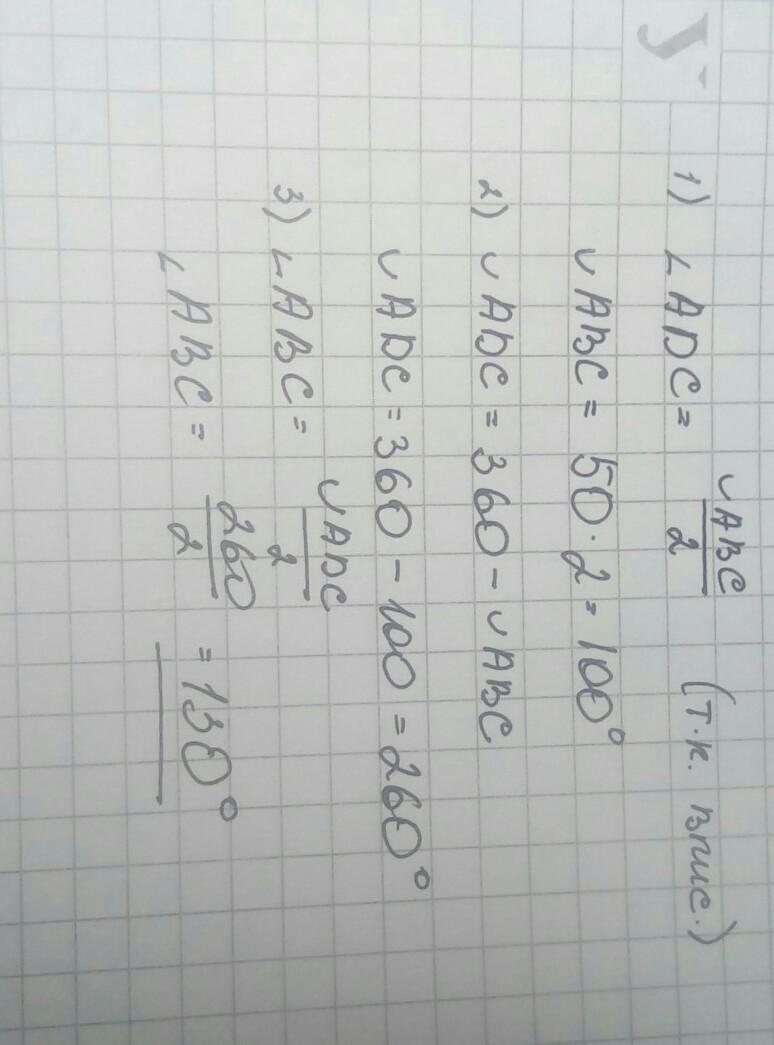 1) ∟ADC = ◡ABC/2 (т.к. впис.)
◡ABC = 50·2 = 100°
2) ◡ADC = 360 - ◡ABC
◡ADC = 360 - 100 = 260°
3) ∟ABC = ◡ADC/2
∟ABC = 260/2 = 130°